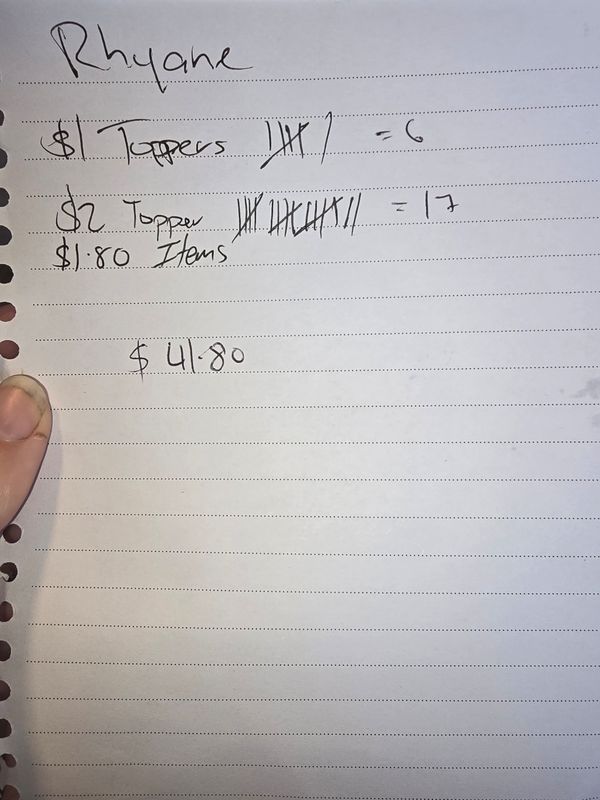 Rhyane
$1 Toppers = 6
$2 Topper = 17
$1.80 Items
$ 41.80